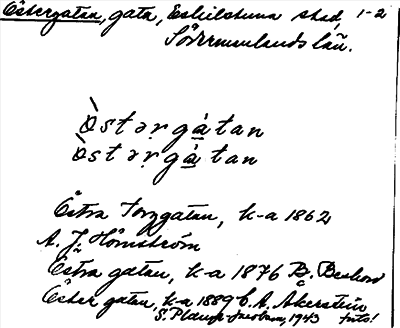 Östergatan, gata, Eskilstuna stad, 1-2
Södermanlands län.
Östərgátan
Östərgátan
Östra Torggatan, k-a 1862
A. J. Hömström
Östra gatan, k-a 1876 B.
Öster gatan, k-a 1889 C. A. Åkerstein
S. 1943 foto!